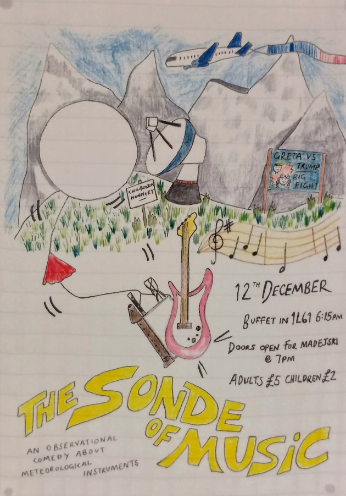 GRETA VS
TRUMP
BIG
FIGHT
12TH DECEMBER
BUFFET IN 1L61 6:15PM
DOORS OPEN FOR MADEJSKI
@ 7PM
ADULTS £5 CHILDREN £2
THE SONDE
OF MUSIC
AN OBSERVATIONAL
COMEDY ABOUT
METEOROLOGICAL INSTRUMENTS